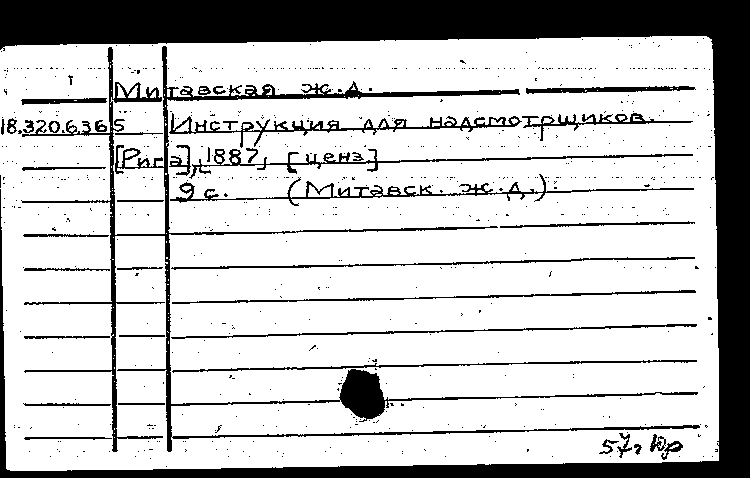 Митавская ж.д.
18.320.6.365 Инструкция для надсмотрщиков.
[Рига], 1887, [ценз]
9 с. (Митавск. ж.д.).
57г Юр